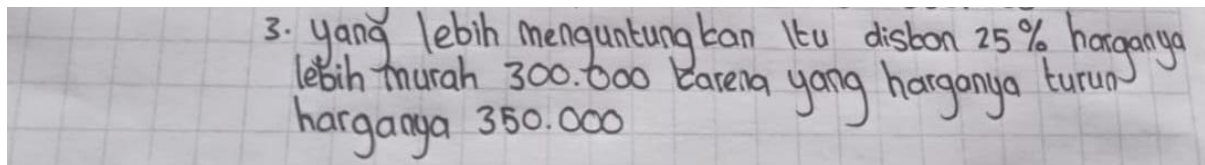 3. yang lebih menguntungkan itu diskon 25% harganya
lebih murah 300.000 karena yang harganya turun
harganya 350.000